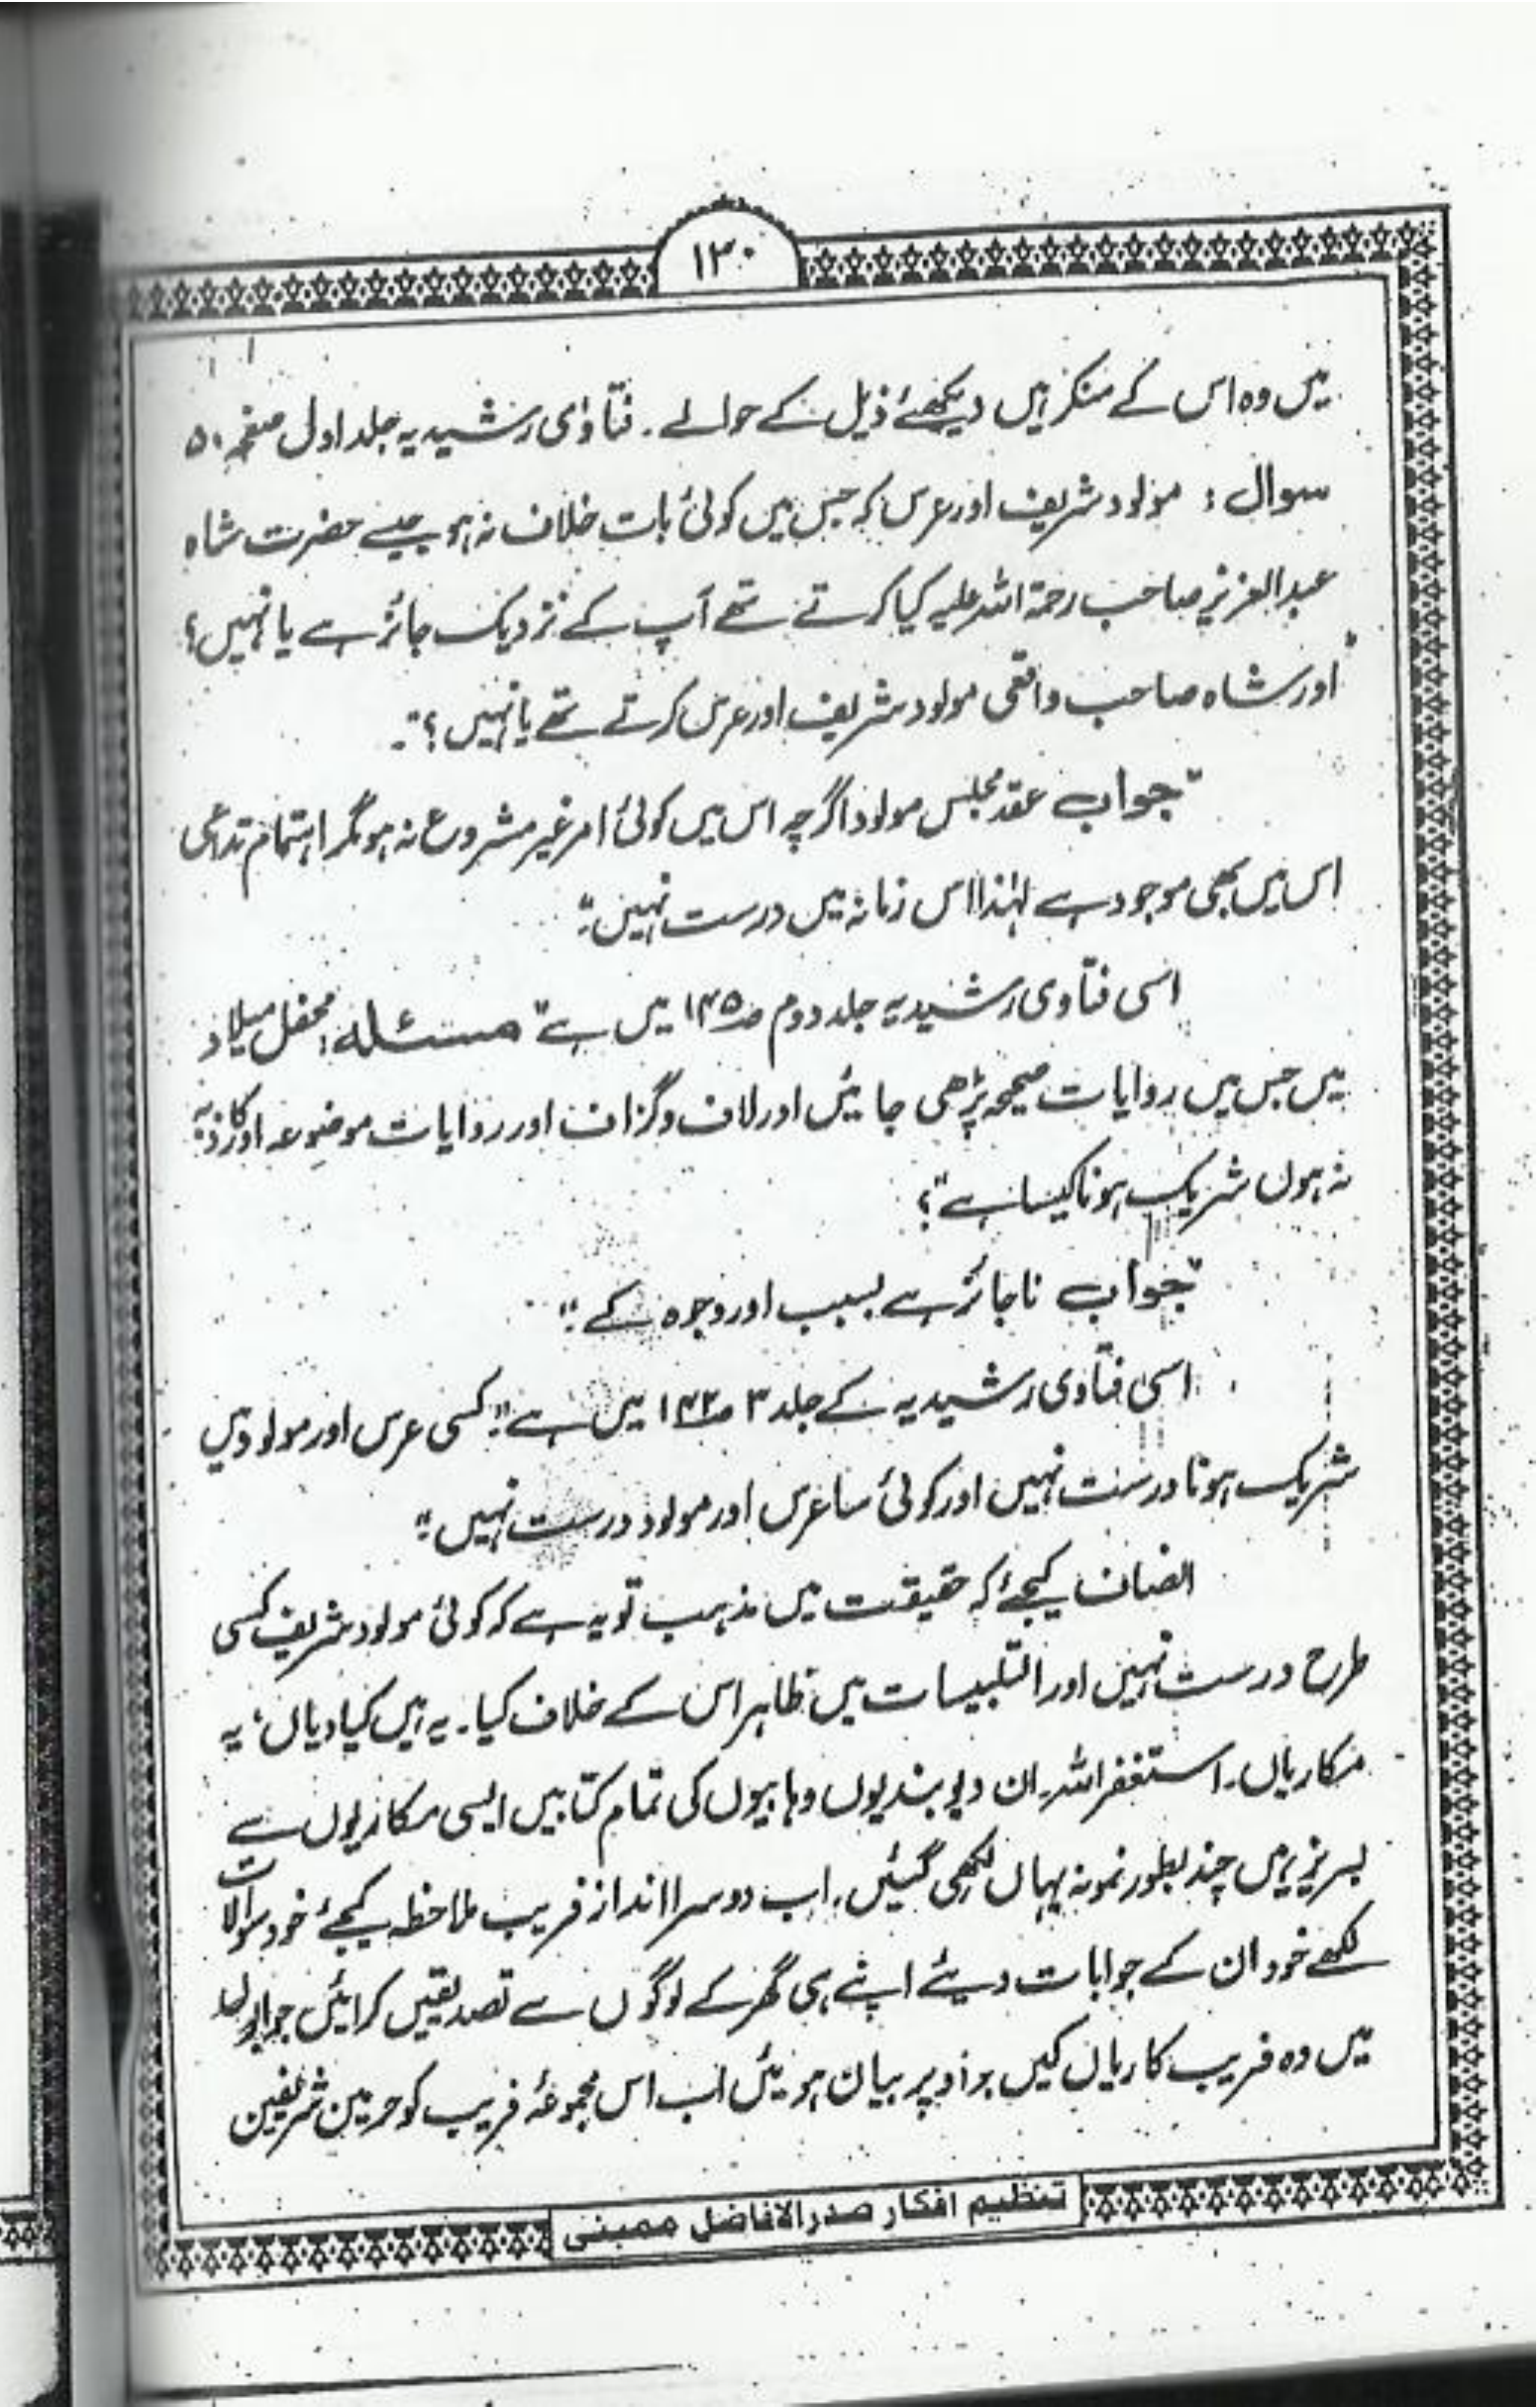 ۱۳۰
میں وہ اس کے منکر ہیں دیکھئے ذیل کے حوالے۔ فتاوٰی رشیدیہ جلد اول صفحہ ۵۰
سوال : مولود شریف اور عرس کہ جس میں کوئی بات خلاف نہ ہو جیسے حضرت شاہ
عبدالعزیز صاحب رحمۃ اللہ علیہ کیا کرتے تھے آپ کے نزدیک جائز ہے یا نہیں؟
اور شاہ صاحب واقعی مولود شریف اور عرس کرتے تھے یا نہیں؟"۔
"جواب عقد مجلس مولود اگرچہ اس میں کوئی امر غیر مشروع نہ ہو مگر اہتمام تداعی
اس میں بھی موجود ہے لہٰذا اس زمانہ میں درست نہیں"۔
اسی فتاوی رشیدیہ جلد دوم صہ۱۴۵ میں ہے "مسئلہ: محفل میلاد
میں جس میں روایات صحیحہ پڑھی جائیں اور لاف و گزاف اور روایات موضوعہ اور کاذبہ
نہ ہوں شریک ہونا کیسا ہے"؟
"جواب ناجائز ہے بسبب اور وجوہ کے"۔
اسی فتاوی رشیدیہ کے جلد ۳ صہ۱۴۲ میں ہے "کسی عرس اور مولود میں
شریک ہونا درست نہیں اور کوئی سا عرس اور مولود درست نہیں"۔
انصاف کیجئے کہ حقیقت میں مذہب تو یہ ہے کہ کوئی مولود شریف کسی
طرح درست نہیں اور التلبیسات میں ظاہر اس کے خلاف کیا۔ یہ ہیں کیادیاں، یہ
مکاریاں۔ استغفر اللہ۔ ان دیوبندیوں وہابیوں کی تمام کتابیں ایسی مکاریوں سے
لبریز ہیں چند بطور نمونہ یہاں لکھی گئیں۔ اب دوسرا انداز فریب ملاحظہ کیجئے خود سوالات
لکھے خود ان کے جوابات دیئے اپنے ہی گھر کے لوگوں سے تصدیقیں کرائیں
میں وہ فریب کاریاں کیں جو اوپر بیان ہوئیں اب اس مجموعۂ فریب کو حرمین شریفین
تنظیم افکار صدرالافاضل ممبئی